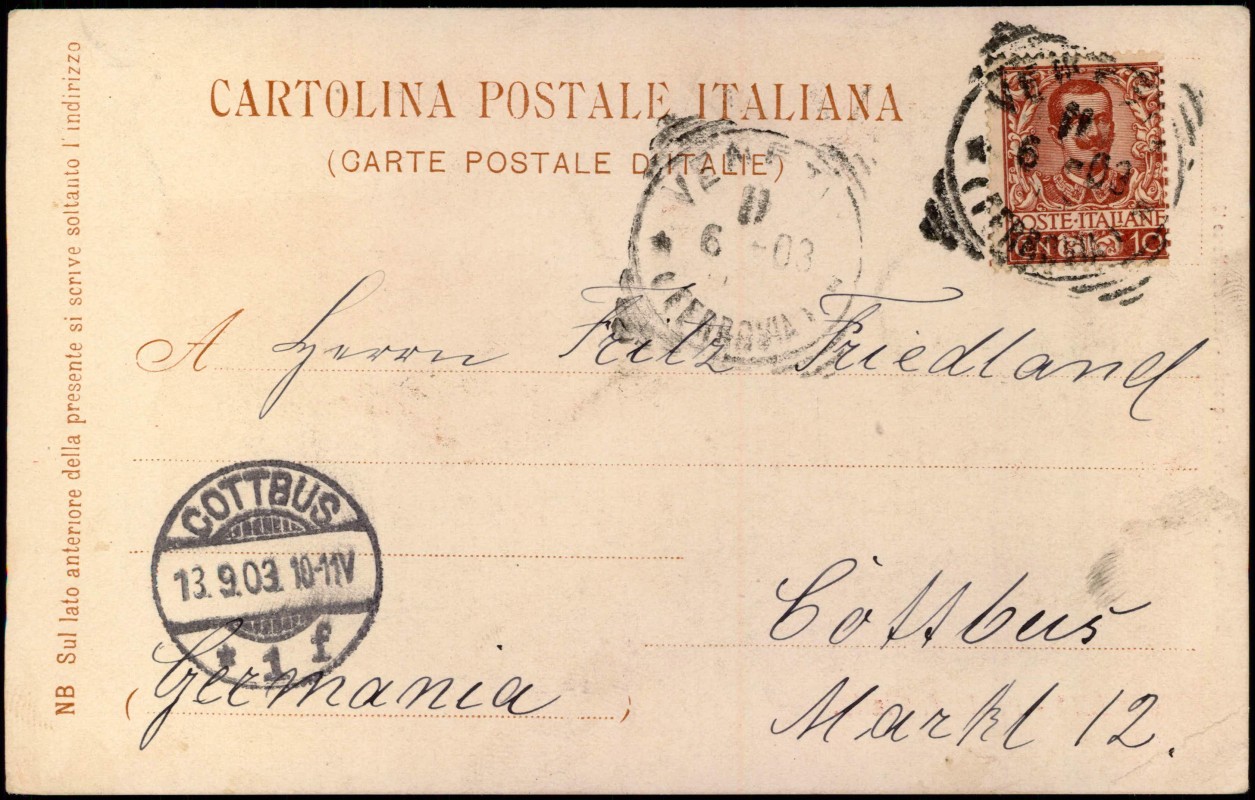 CARTOLINA POSTALE ITALIANA
(CARTE POSTALE D'ITALIE)
NB Sul lato anteriore della presente si scrive soltanto l'indirizzo
POSTE-ITALIANE
10
11
6 -03
FERROVIA
11
6 -03
A Herrn Fritz Friedland
COTTBUS
13.9.03. 10-11V
* 1 f
Cottbus
(Germania)
Markt 12.